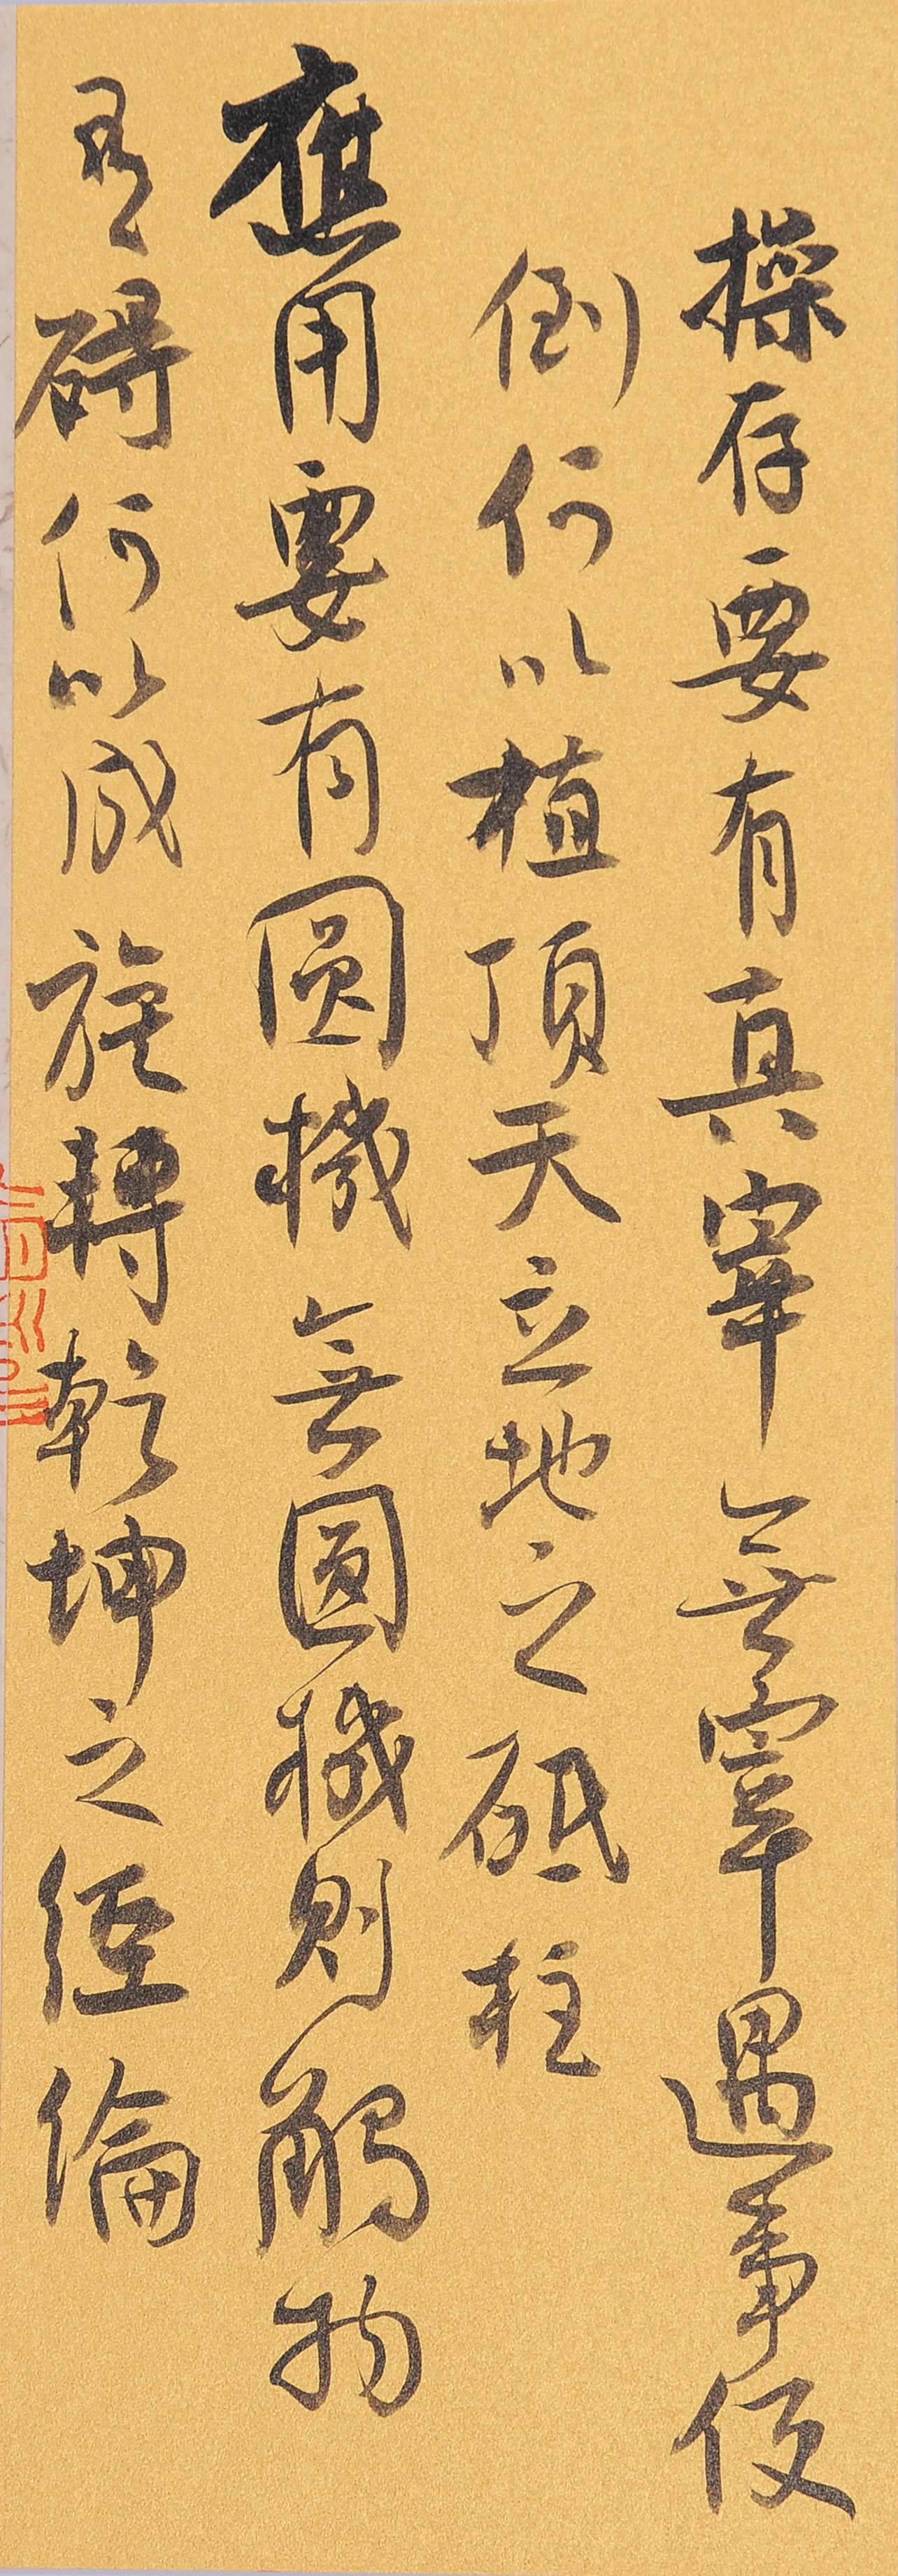 操存要有真宰無宰遇事便
倒何以植頂天立地之砥柱
應用要有圓機無圓機則觸物
有碍何以成旋轉乾坤之經綸